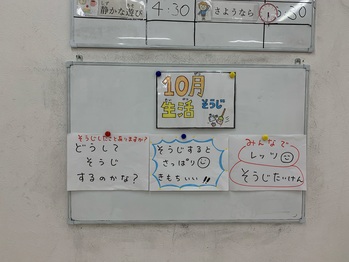 静かな遊び
4:30
さようなら
10月
生活
そうじ
そうじしたことありますか?
どうして
そうじ
するのかな?
そうじすると
さっぱり
きもちいい!!
みんなで
レッツ
そうじたいけん